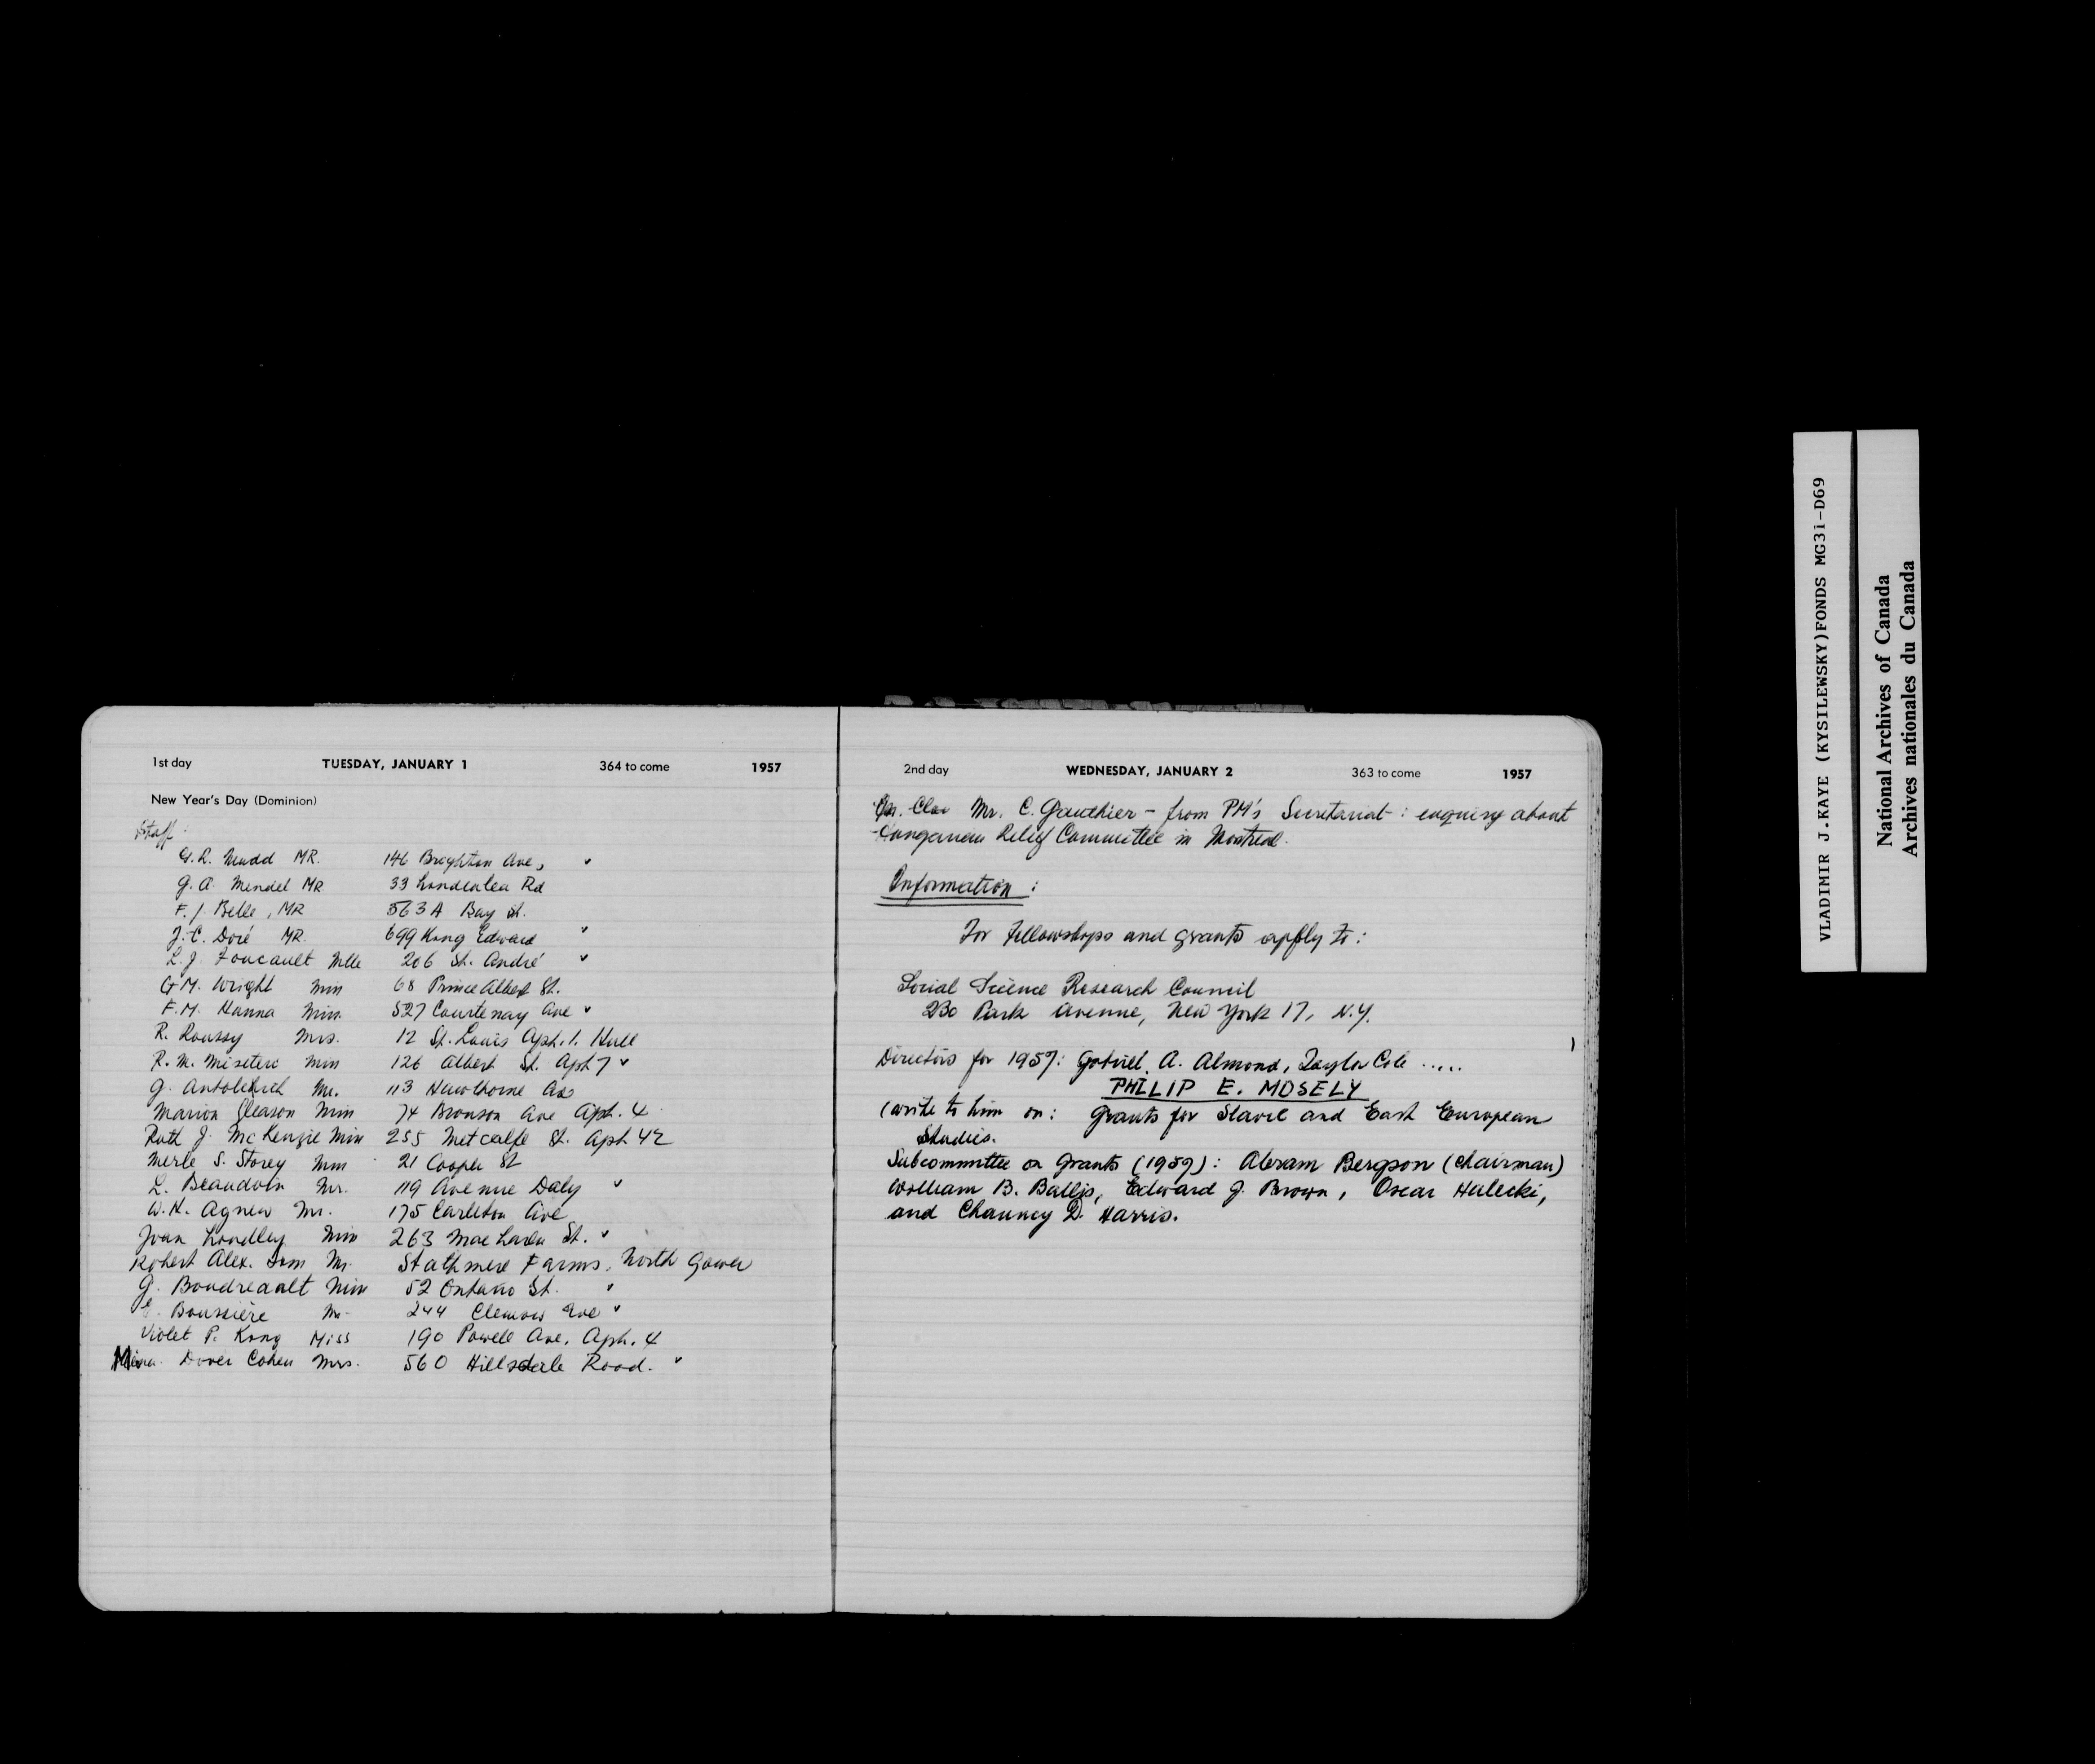 1st day TUESDAY, JANUARY 1 364 to come 1957
New Year's Day (Dominion)
Staff:
G.R. Mudd MR. 146 Brighton Ave, v
G.A. Mendel MR 33 Rd
F.J. Belle, MR 563A Bay St.
J.C. Doré MR. 699 King Edward v
L.J. Foucault Mlle 206 St. André v
G.M. Wright Miss 68 Prince Albert St.
F.M. Hanna Miss 527 Courtenay Ave v
R. Roussy Mrs. 12 St. Louis Apt. 1. Hull
R.M. Miss 126 Albert St. Apt 7 v
G. Mr. 113 Hawthorne Ave
Marion Gleason Miss 74 Bronson Ave Apt. 4
Ruth J. McKenzie Miss 255 Metcalfe St. Apt 42
Merle S. Storey Miss 21 Cooper St
L. Beaudoin Mr. 119 Avenue Daly v
W.H. Agnew Mr. 175 Carleton Ave
Joan Miss 263 MacLaren St. v
Robert Alex. Mr. Stathmere Farms, North Gower
G. Boudreault Miss 52 Ontario St. v
Boussière Mr. 244 Clemow Ave v
Violet P. King Miss 190 Powell Ave. Apt. 4
Mina Dover Cohen Mrs. 560 Hillsdale Road. v
2nd day WEDNESDAY, JANUARY 2 363 to come 1957
Mr. C. Gauthier – from PM's Secretariat: enquiry about
Hungarian Relief Committee in Montreal.
Information:
For Fellowships and grants apply to:
Social Science Research Council
230 Park Avenue, New York 17, N.Y.
Directors for 1957: Gabriel A. Almond, Taylor Cole .....
PHILIP E. MOSELY
(write to him on: Grants for Slavic and East European
Studies.
Subcommittee on Grants (1957): Abram Bergson (Chairman)
William B. Ballis, Edward J. Brown, Oscar Halecki,
and Chauncy D. Harris.
VLADIMIR J.KAYE (KYSILEWSKY)FONDS MG31-D69
National Archives of Canada
Archives nationales du Canada